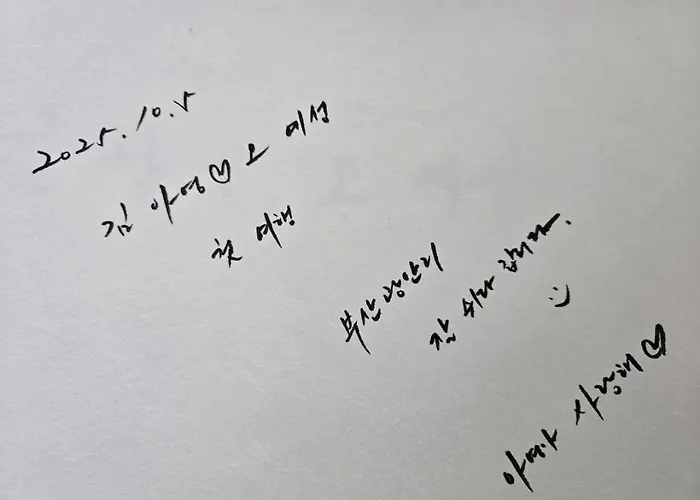 2025.10.5
김 아영♡오 예성
첫 여행
부산 광안리
잘 쉬다 갑니다.
:)
아영아 사랑해♡